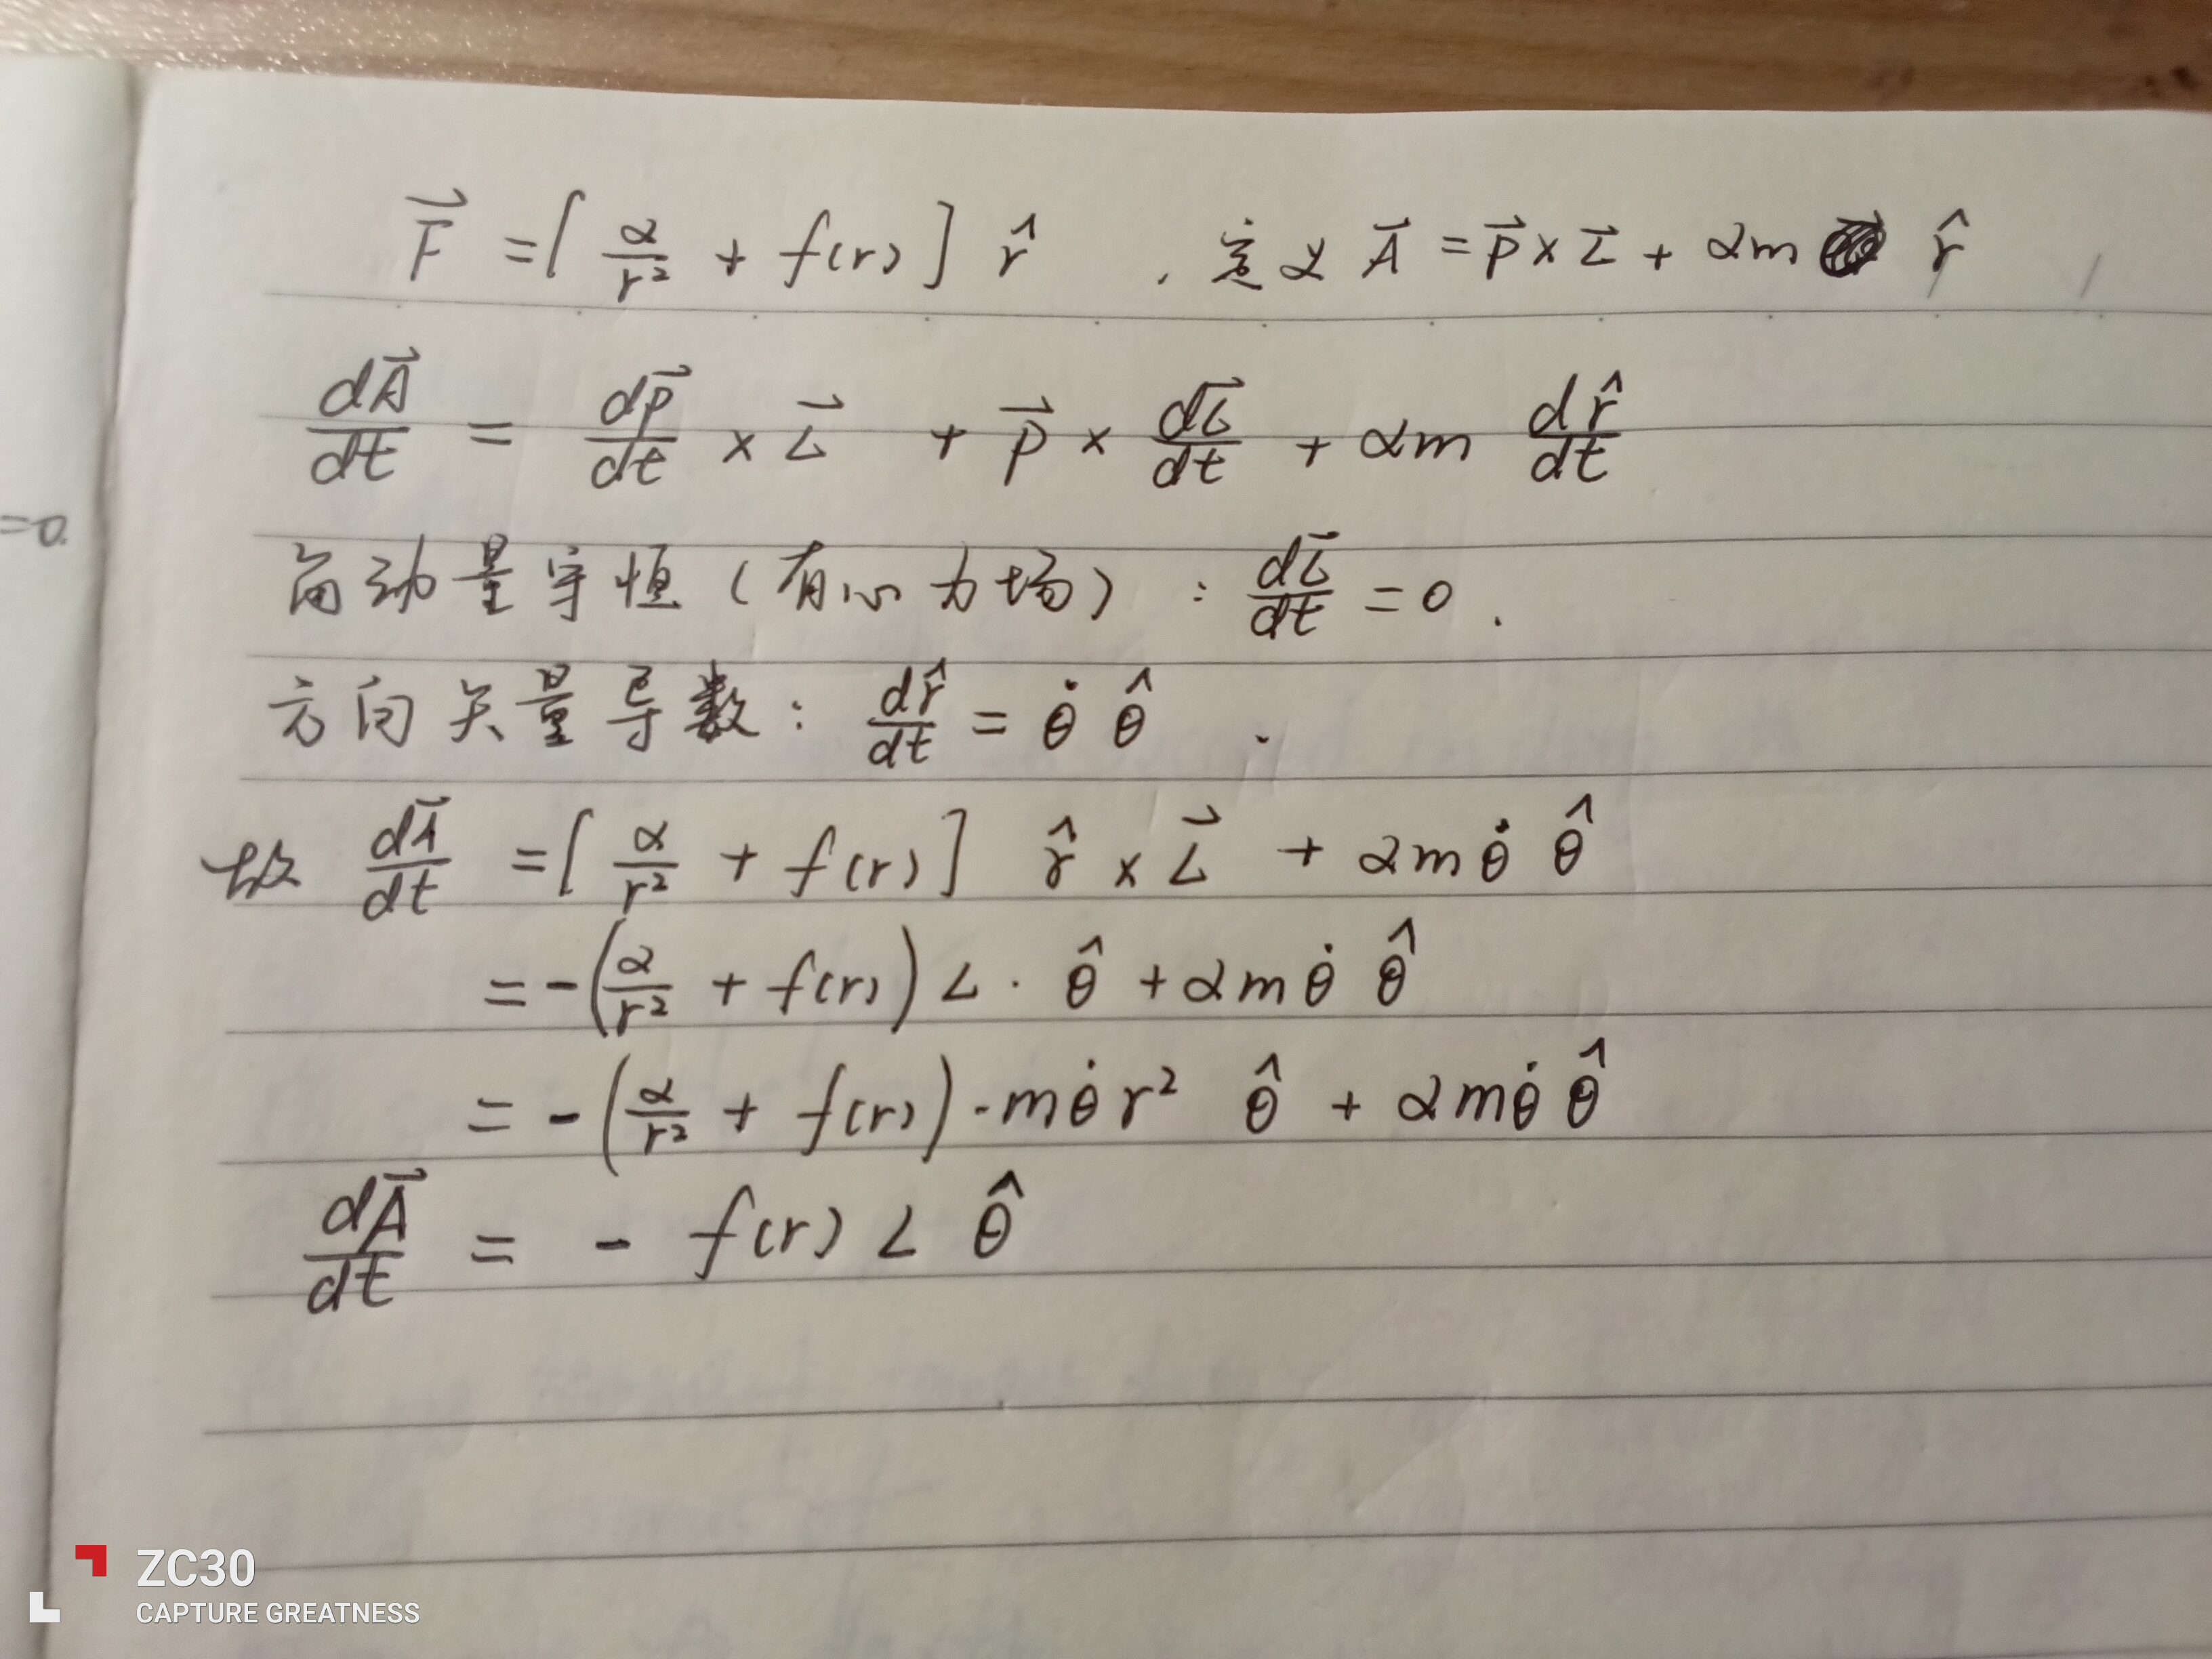 =0.
F⃗ = [ α/r² + f(r) ] r̂ . 定义 A⃗ = p⃗ × L⃗ + αm r̂
dA⃗/dt = dp⃗/dt × L⃗ + p⃗ × dL⃗/dt + αm dr̂/dt
角动量守恒(有心力场): dL⃗/dt = 0 .
方向矢量导数: dr̂/dt = θ̇ θ̂ .
故 dA⃗/dt = [ α/r² + f(r) ] r̂ × L⃗ + αmθ̇ θ̂
= -( α/r² + f(r) ) L · θ̂ + αmθ̇ θ̂
= -( α/r² + f(r) ) · mθ̇r² θ̂ + αmθ̇ θ̂
dA⃗/dt = - f(r) L θ̂
ZC30
CAPTURE GREATNESS